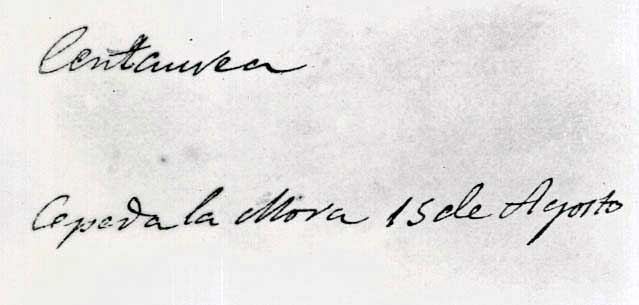 Centaurea
Cepeda la Mora 15 de Agosto